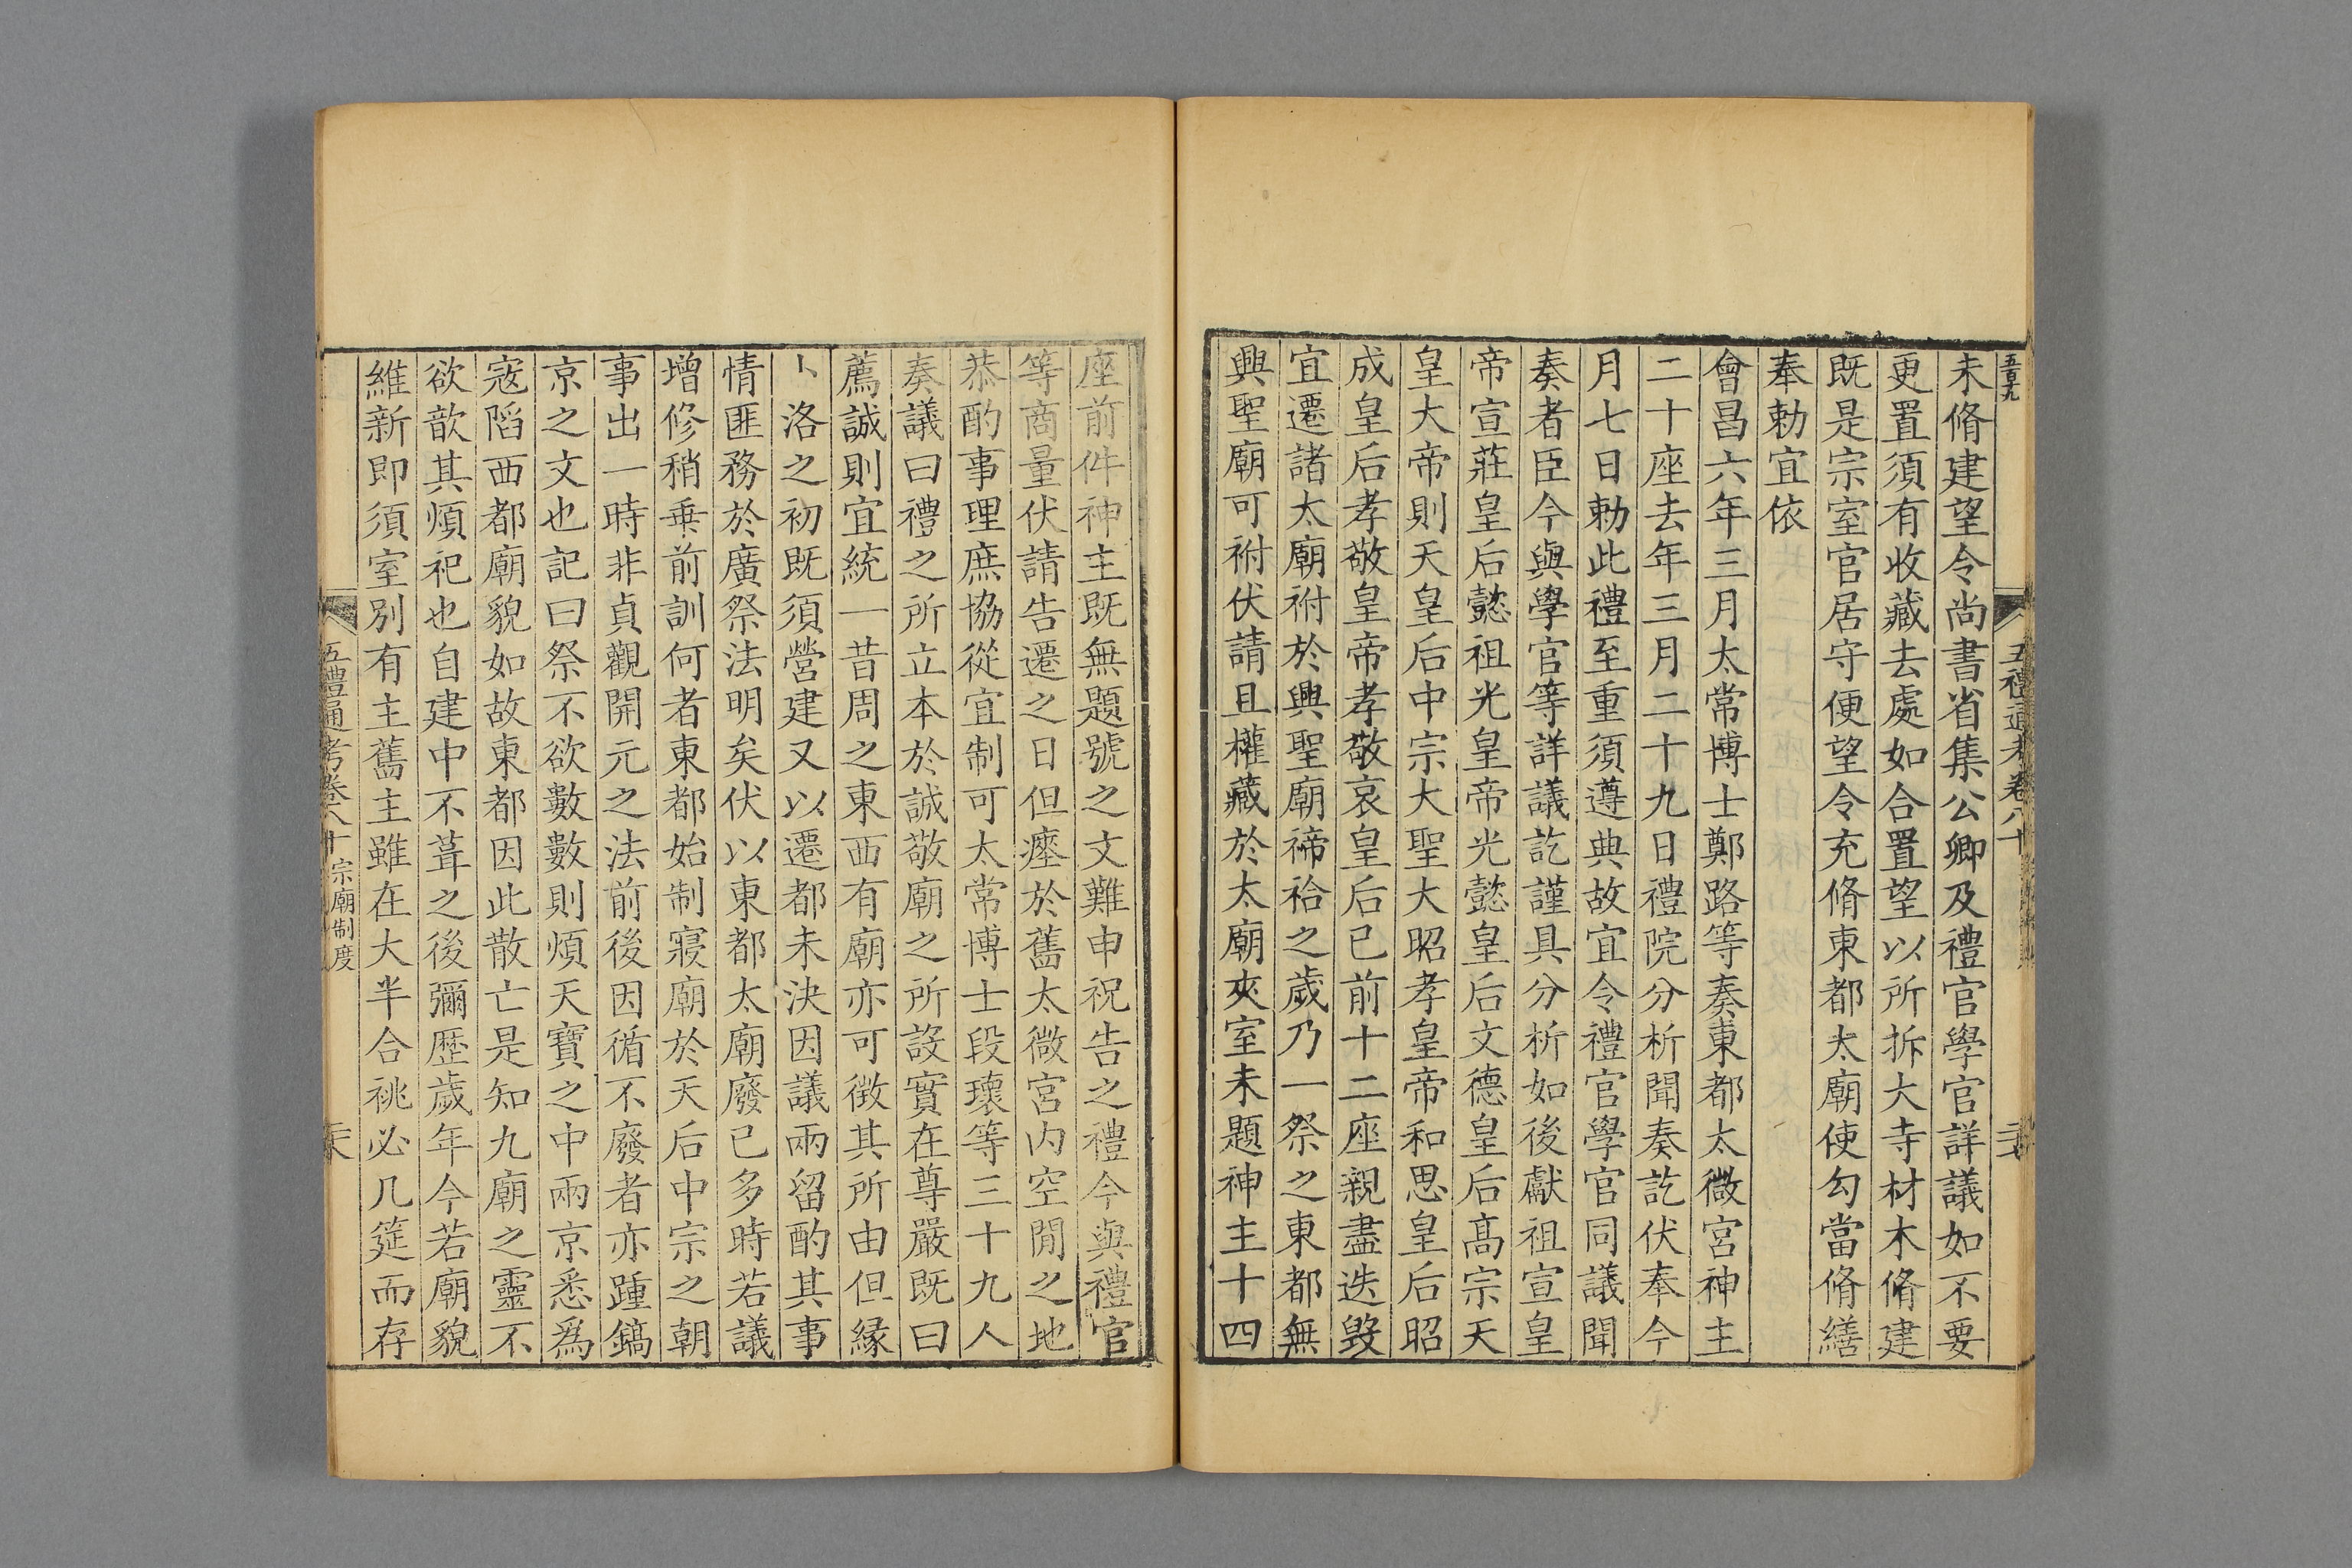 五百九
五禮通考卷八十
未脩建望令尚書省集公卿及禮官學官詳議如不要
更置須有收藏去處如合置望以所拆大寺材木脩建
既是宗室官居守便望令充脩東都太廟使勾當脩繕
奉勅宜依
會昌六年三月太常博士鄭路等奏東都太微宮神主
二十座去年三月二十九日禮院分析聞奏訖伏奉今
月七日勅此禮至重須遵典故宜令禮官學官同議聞
奏者臣今與學官等詳議訖謹具分析如後獻祖宣皇
帝宣莊皇后懿祖光皇帝光懿皇后文德皇后高宗天
皇大帝則天皇后中宗大聖大昭孝皇帝和思皇后昭
成皇后孝敬皇帝孝敬哀皇后已前十二座親盡迭毀
宜遷諸太廟祔於興聖廟禘祫之歲乃一祭之東都無
興聖廟可祔伏請且權藏於太廟夾室未題神主十四
座前件神主既無題號之文難申祝告之禮今與禮官
等商量伏請告遷之日但瘞於舊太微宮内空閒之地
恭酌事理庶協從宜制可太常博士段瓌等三十九人
奏議曰禮之所立本於誠敬廟之所設實在尊嚴既曰
薦誠則宜統一昔周之東西有廟亦可徴其所由但緣
卜洛之初既須營建又以遷都未決因議兩留酌其事
情匪務於廣祭法明矣伏以東都太廟廢已多時若議
增修稍乗前訓何者東都始制寢廟於天后中宗之朝
事出一時非貞觀開元之法前後因循不廢者亦踵鎬
京之文也記曰祭不欲數數則煩天寶之中兩京悉爲
寇䧟西都廟貌如故東都因此散亡是知九廟之靈不
欲歆其煩祀也自建中不葺之後彌歴歲年今若廟貌
維新即須室別有主舊主雖在大半合祧必几筵而存
五禮通考卷八十 宗廟制度